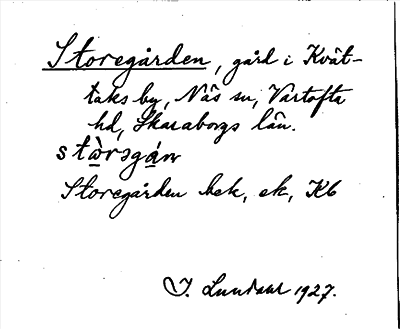 Storegården, gård i Kvät-
taks by, Näs sn, Vartofta
hd, Skaraborgs län.
stòrəgán
Storegården bek, ek, Kb
J. Lundahl 1927.